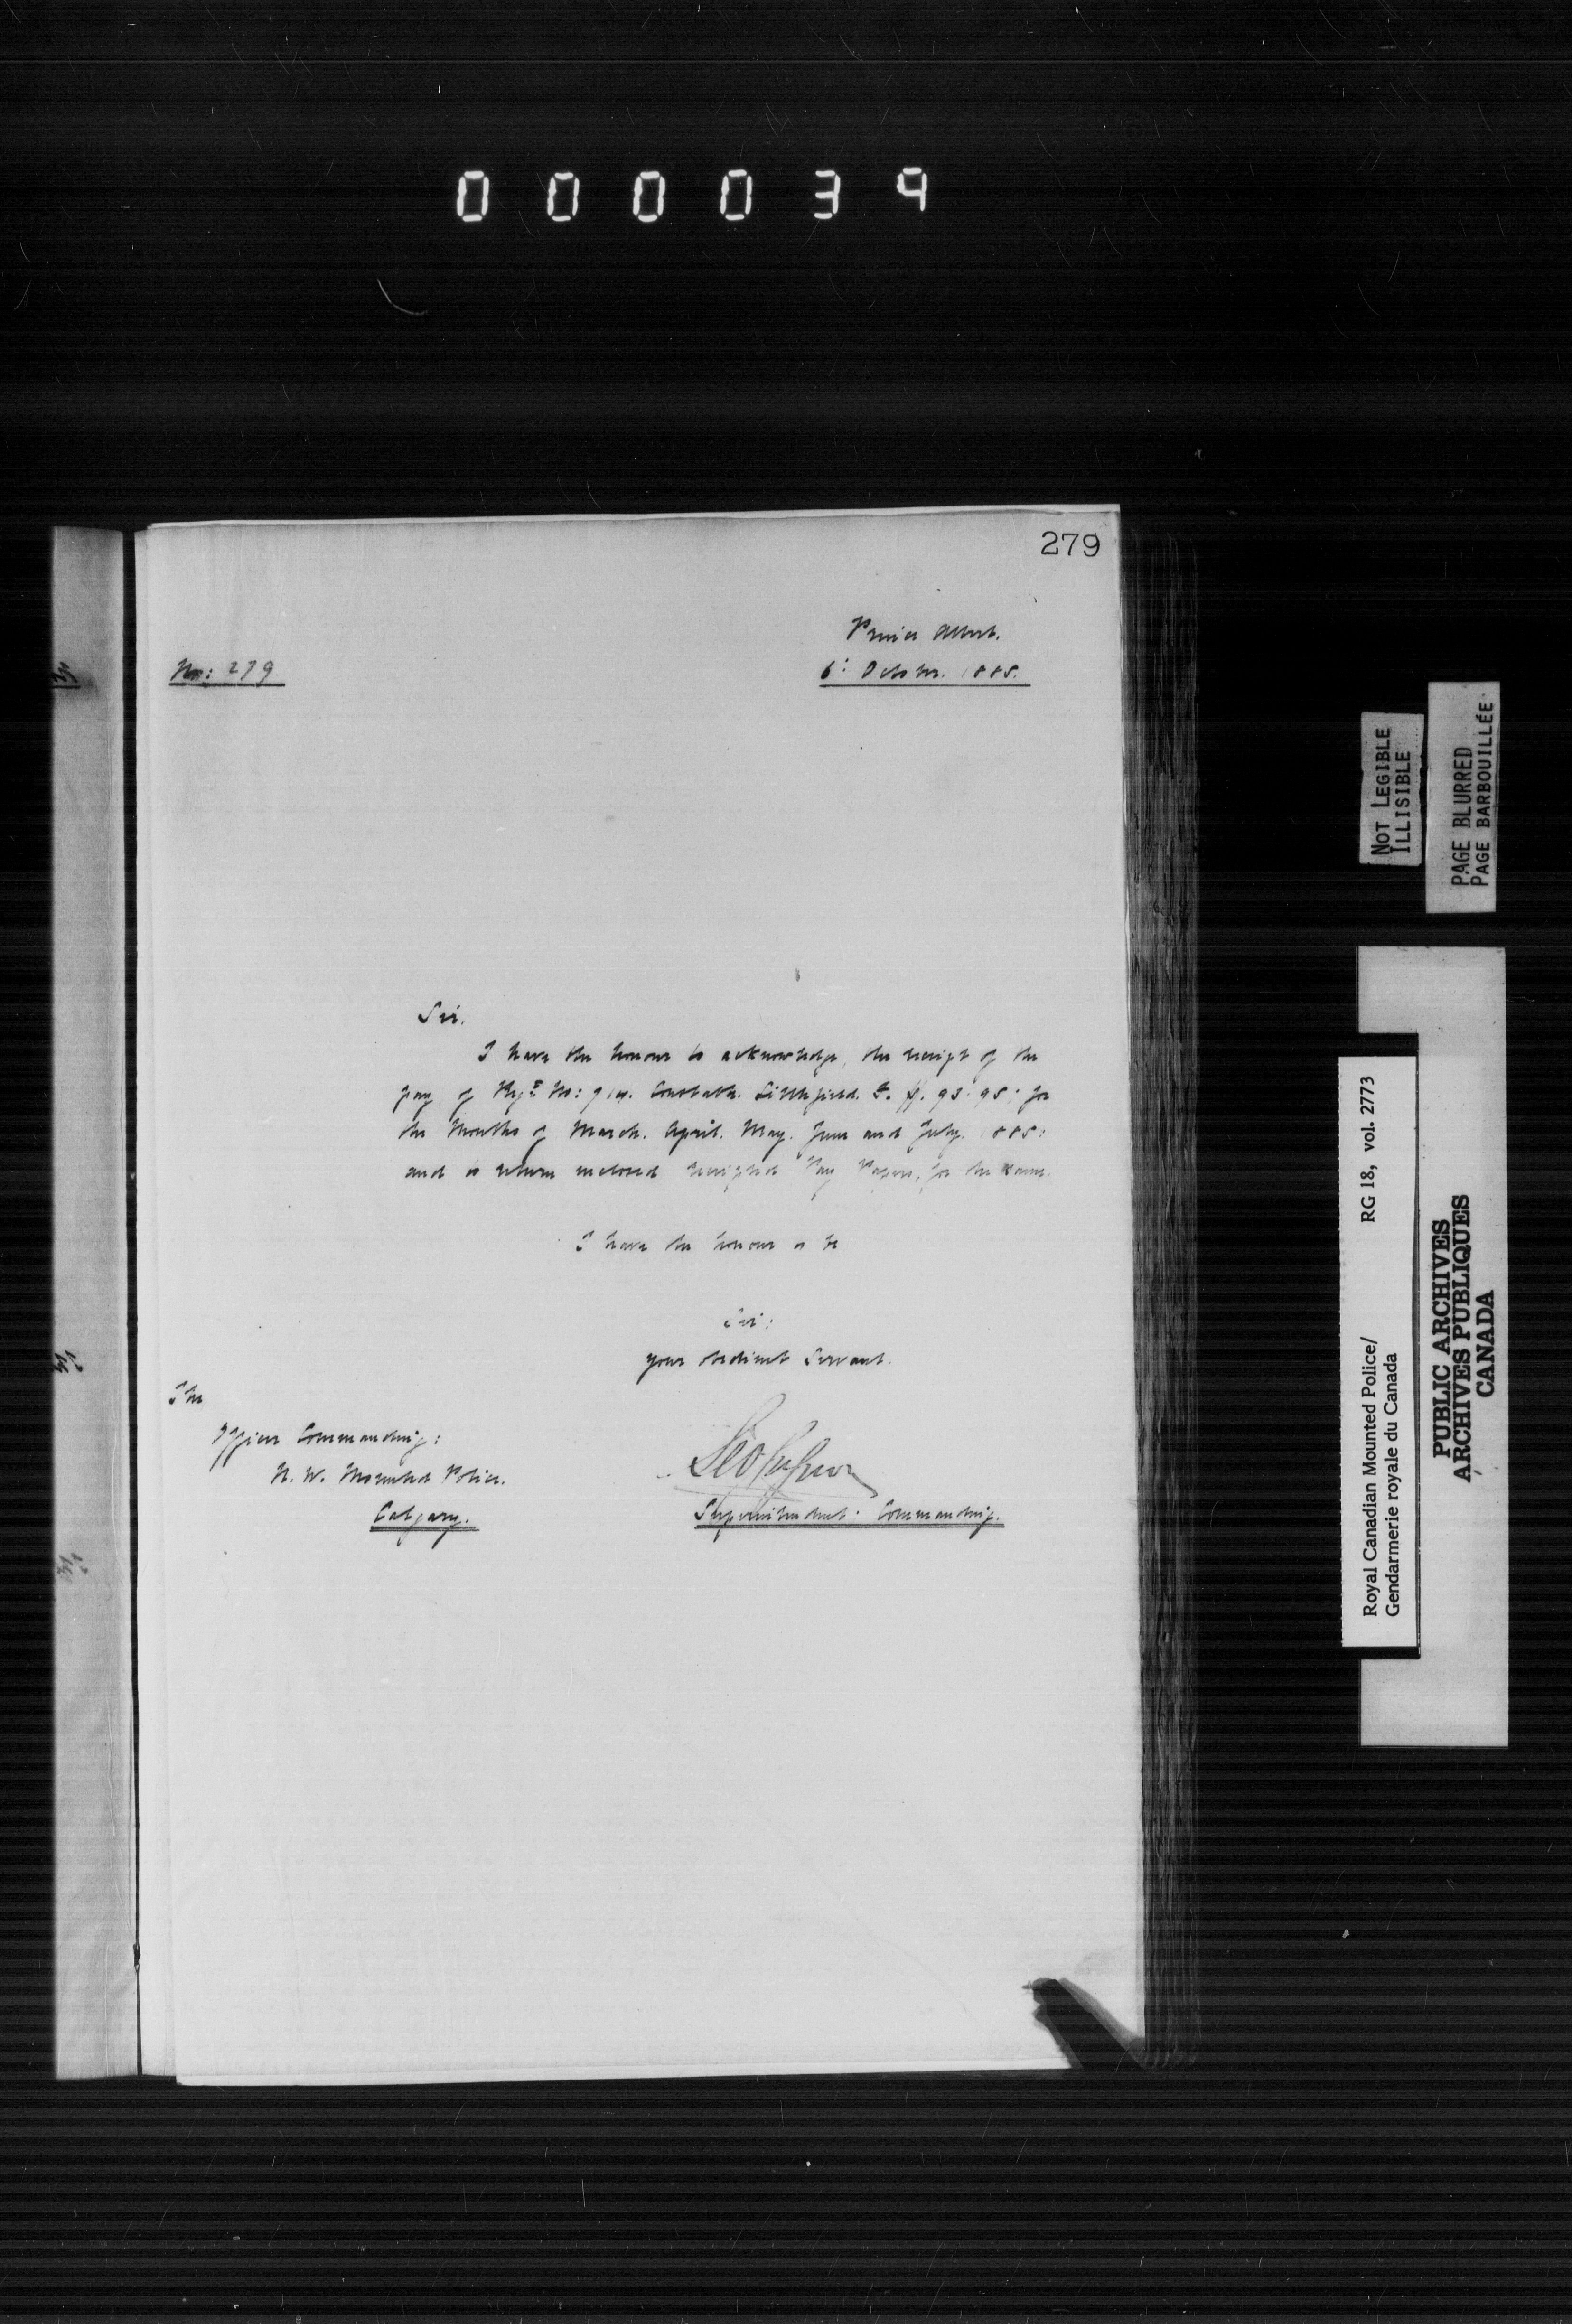 000039
279
Prince Albert.
No: 279
6: October. 1885.
Sir.
I have the honour to acknowledge, the receipt of the
pay of Regt. No: 914. Constable. Littlefield. F. $. 93. 95: for
the Months of March. April. May. June and July. 1885:
and to return inclosed receipted Pay Papers, for the same.
I have the honour to be
Sir:
your obedient Servant.
The
Officer Commanding:
N. W. Mounted Police.
Calgary.
Superintendent: Commanding.
NOT LEGIBLE
ILLISIBLE
PAGE BLURRED
PAGE BARBOUILLÉE
Royal Canadian Mounted Police/ RG 18, vol. 2773
Gendarmerie royale du Canada
PUBLIC ARCHIVES
ARCHIVES PUBLIQUES
CANADA